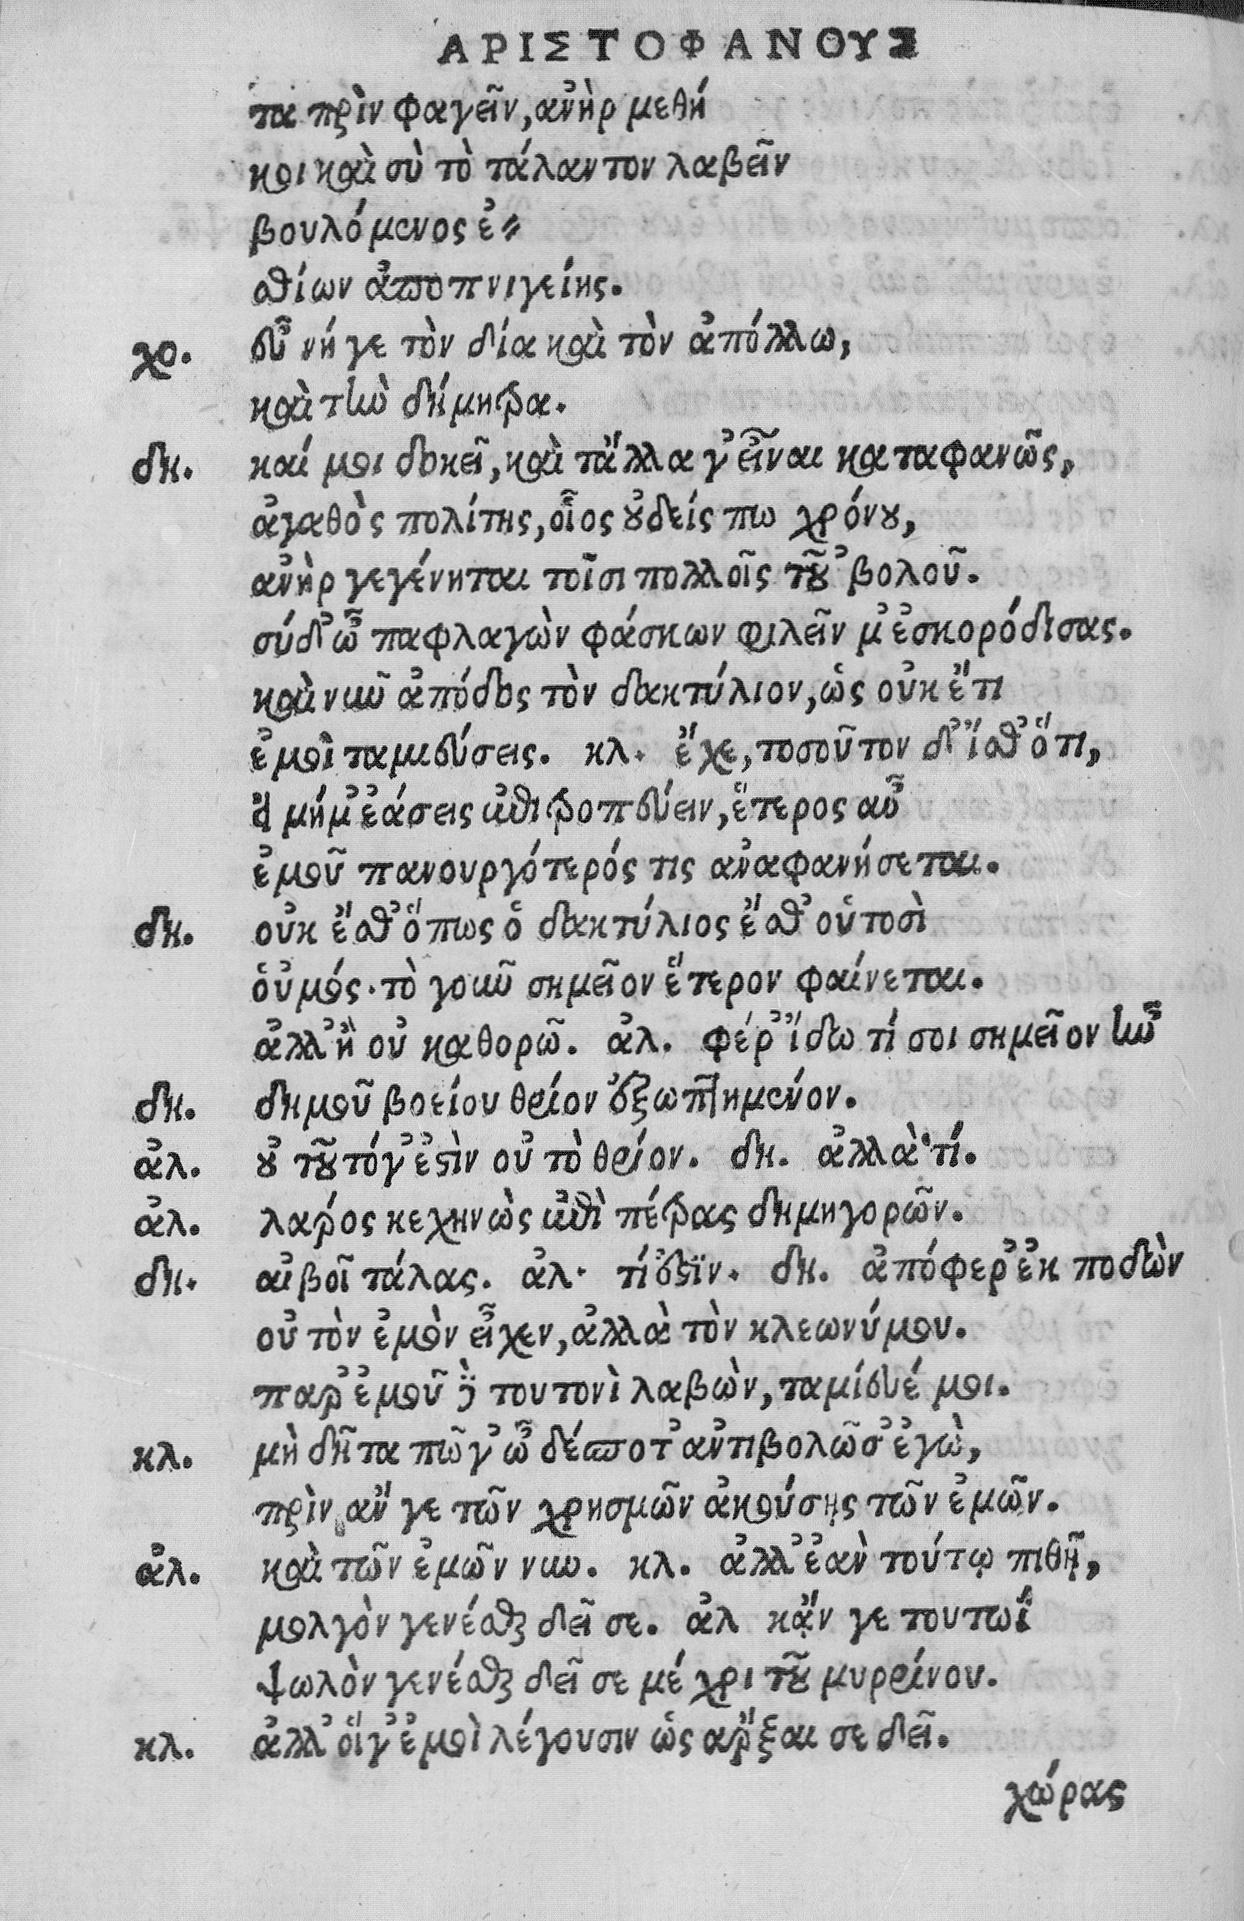 ΑΡΙΣΤΟΦΑΝΟΥΣ
τα πρὶν φαγεῖν, ἀνὴρ μεθή
κοι καὶ σὺ τὸ τάλαντον λαβεῖν
βουλόμενος ἐ⸗
σθίων ἀποπνιγείης.
χο. εὖ νή γε τὸν δία καὶ τὸν ἀπόλλω,
καὶ τὴν δήμητρα.
δη. καί μοι δοκεῖ, καὶ τἄλλα γ᾽ εἶναι καταφανῶς,
ἀγαθὸς πολίτης, οἷος οὐδείς πω χρόνου,
ἀνὴρ γεγένηται τοῖσι πολλοῖς τοῦ ᾽βολοῦ.
σύ δ᾽ ὦ παφλαγὼν φάσκων φιλεῖν μ᾽ ἐσκορόδισας.
καὶ νῦν ἀπόδος τὸν δακτύλιον, ὡς οὐκ ἔτι
ἐμοὶ ταμιεύσεις. κλ. ἔχε, τοσοῦτον δ᾽ ἴσθ᾽ ὅτι,
εἰ μή μ᾽ ἐάσεις ἐπιτροπεύειν, ἕτερος αὖ
ἐμοῦ πανουργότερός τις ἀναφανήσεται.
δη. οὐκ ἔσθ᾽ ὅπως ὁ δακτύλιος ἔσθ᾽ οὑτοσὶ
οὑμός. τὸ γοῦν σημεῖον ἕτερον φαίνεται.
ἀλλ᾽ ἢ οὐ καθορῶ. ἀλ. φέρ᾽ ἴδω τί σοι σημεῖον ἦν
δη. δημοῦ βοείου θρίον ἐξωπτημένον.
ἀλ. οὐ τοῦτό γ᾽ ἐστὶν οὐ τὸ θρίον. δη. ἀλλὰ τί.
ἀλ. λάρος κεχηνὼς ἐπὶ πέτρας δημηγορῶν.
δη. αἰβοῖ τάλας. ἀλ. τί ἐστϊν. δη. ἀπόφερ᾽ ἐκ ποδὼν
οὐ τὸν ἐμὸν εἶχεν, ἀλλὰ τὸν κλεωνύμου.
παρ᾽ ἐμοῦ δὲ τουτονὶ λαβὼν, ταμίευέ μοι.
κλ. μὴ δῆτα πῶ γ᾽ ὦ δέσποτ᾽ ἀντιβολῶ σ᾽ ἐγὼ,
πρὶν ἄν γε τῶν χρησμῶν ἀκούσῃς τῶν ἐμῶν.
ἀλ. καὶ τῶν ἐμῶν νυν. κλ. ἀλλ᾽ ἐὰν τούτῳ πιθῇ,
μολγὸν γενέσθαι δεῖ σε. ἀλ κἄν γε τουτωΐ
ψωλὸν γενέσθαι δεῖ σε μέχρι τοῦ μυρρίνου.
κλ. ἀλλ᾽ οἵ γ᾽ ἐμοὶ λέγουσιν ὡς ἄρξαι σε δεῖ.
χώρας